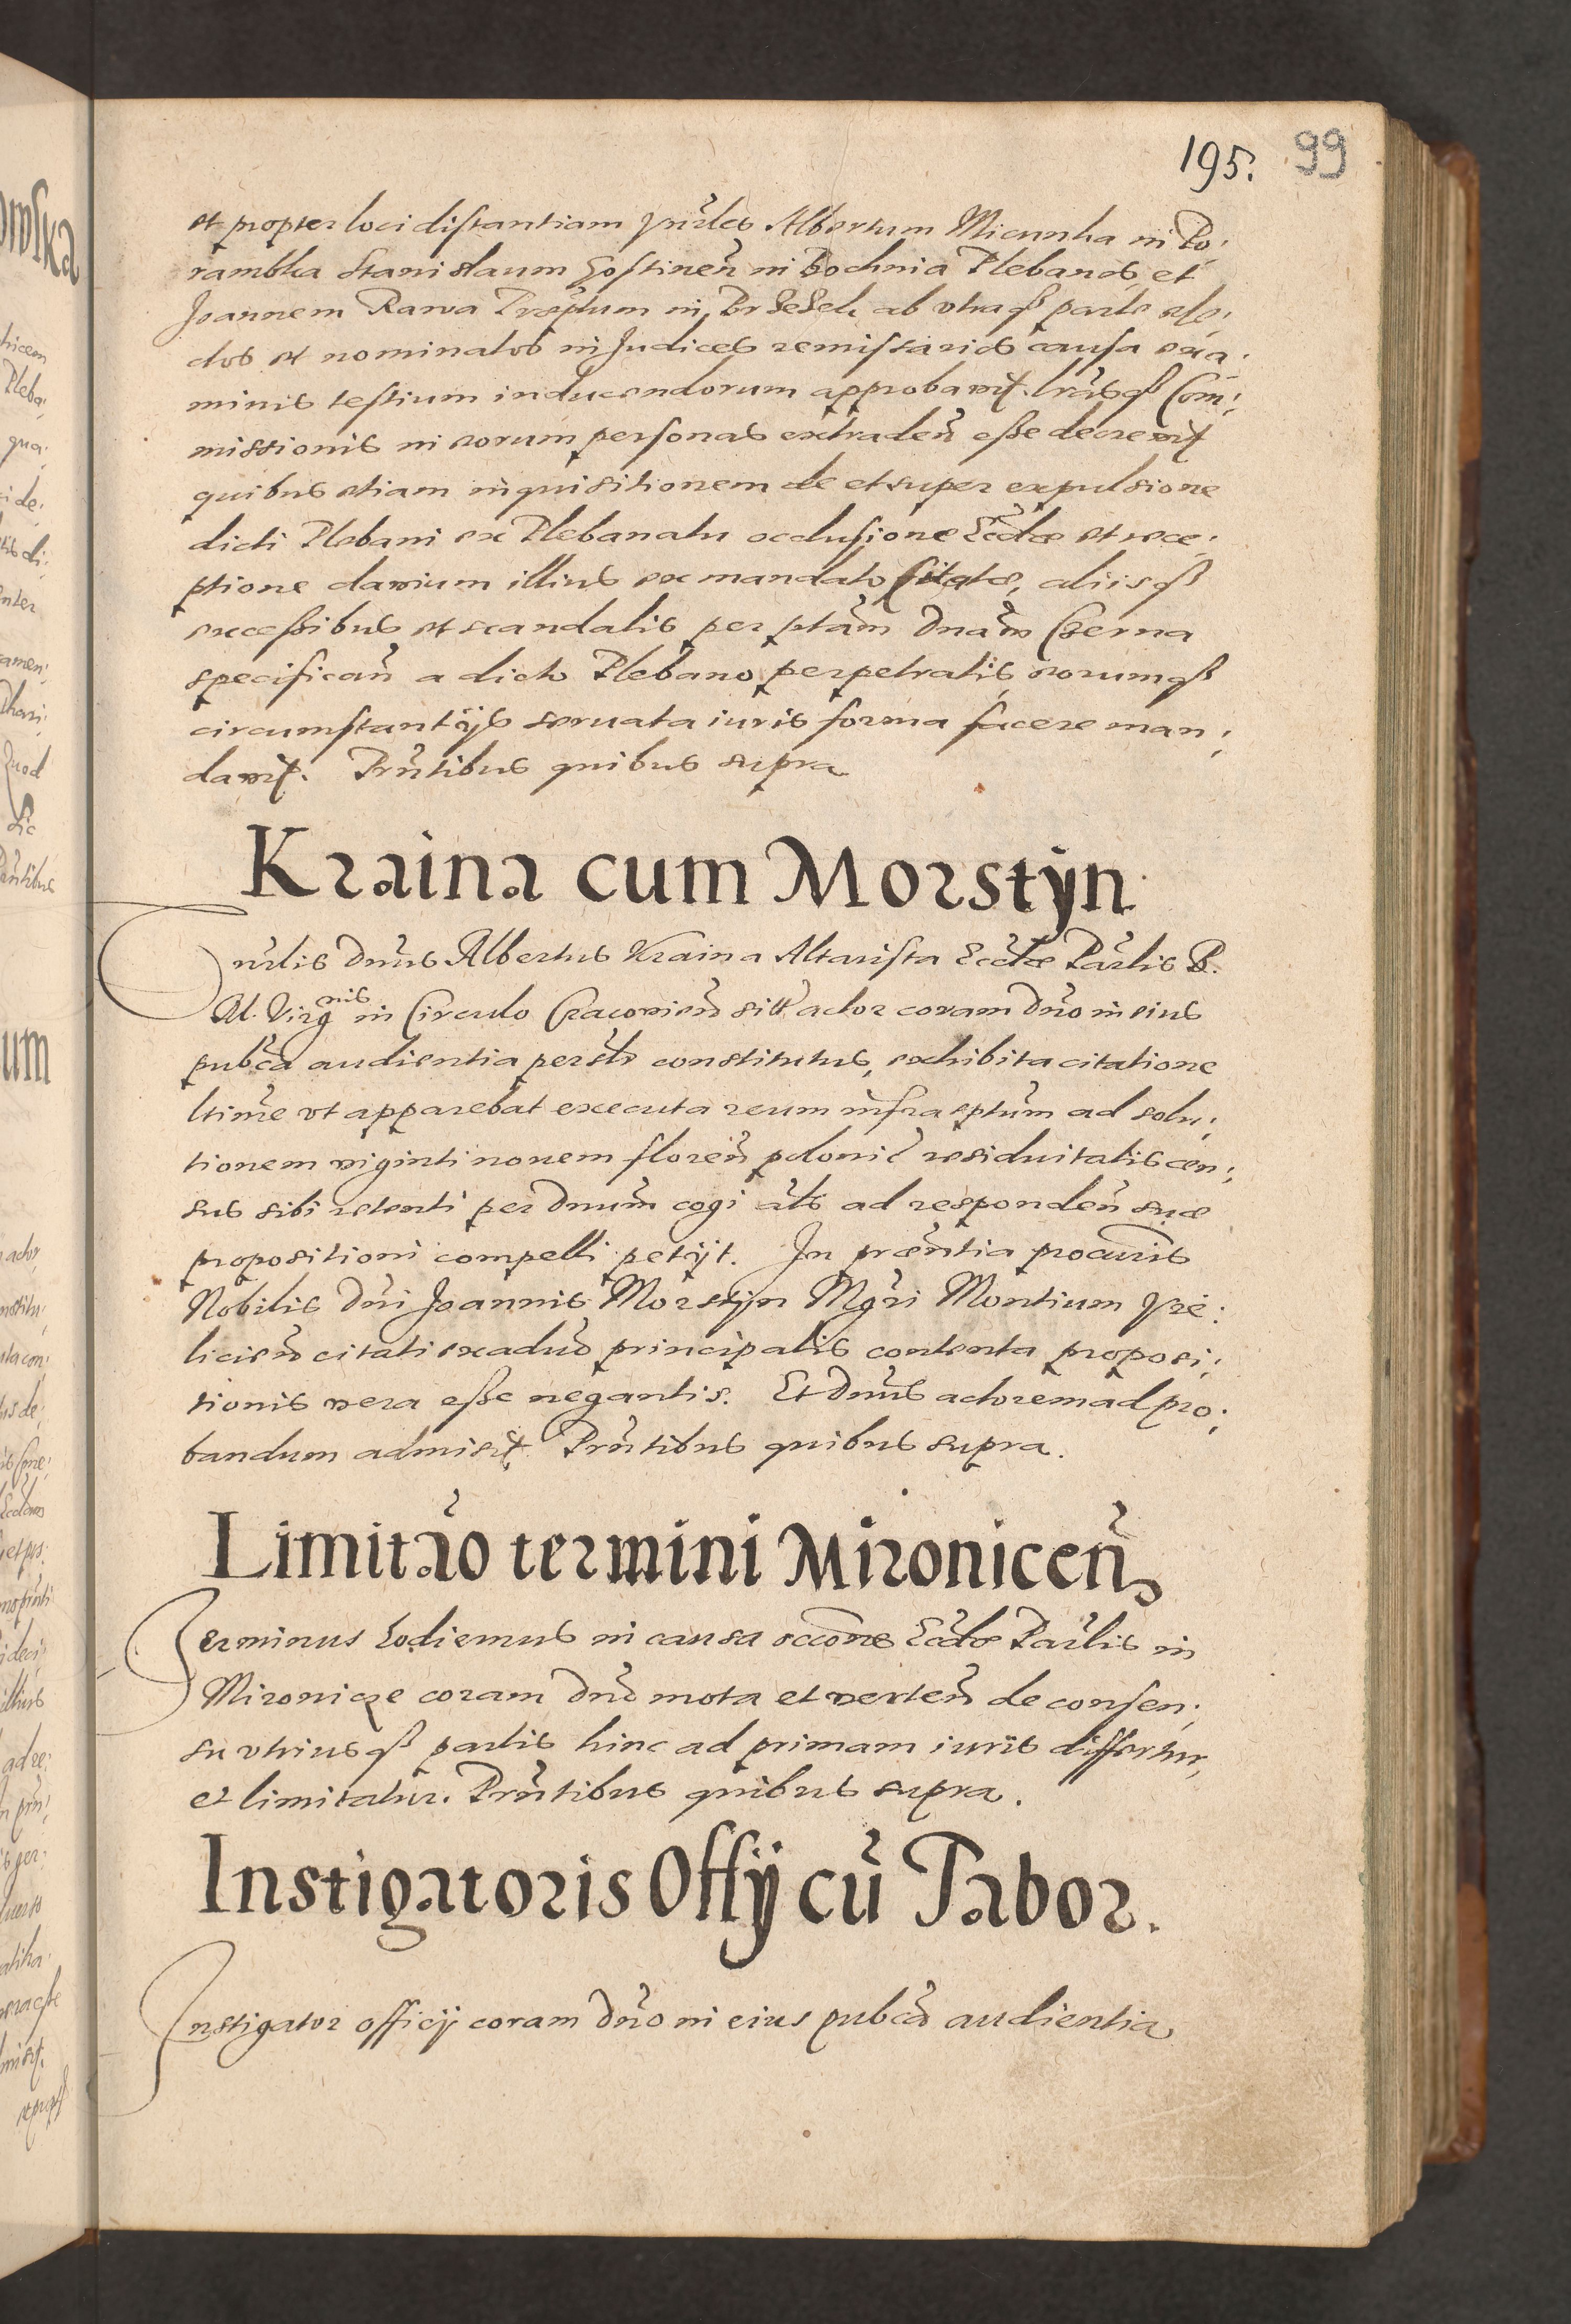 195. 99
et propter loci distantiam Albertum Micunka in Po:
rambka Stanislaum Gostinen̄ in Bochnia Plebanos, et
Joannem Rawa Præptum in Brzezek ab vtraq₃ parte ele:
ctos et nominatos in Judices remissarios causa exa:
minis testium inducendorum approbavit. l̃rasq₃ Com:
missionis in eorum personas extraden̄ esse decrevit
quibus etiam inquisitionem de et super expulsione
dicti Plebani ex Plebanatu occlusione Eccl̃æ et rece:
ptione clavium illius ex mandato citatæ, aliisq₃
excessibus et scandalis per p̃tam Dn̄am Czerna
specifican̄ a dicto Plebano perpetratis, eorumq₃
circumstantijs servata iuris forma facere man:
davit. Pr̃ntibus quibus supra
Kraina cum Morstÿn
Dn̄us Albertus Kraina Altarista Eccl̃æ Par̃lis B.
M. Virgnis in Circulo Cracovien̄ sitæ actor coram Dn̄o in eius
pub̃ca audientia constitutus, exhibita citatione
l̃time vt apparebat executa reum infrascptum ad solu:
tionem viginti novem floren̄ polonic̄ residuitatis cen:
sus sibi retenti per Dn̄um cogi al̃s ad responden̄ suæ
propositioni compelli petijt. In præn̄tia procuris
Nobilis Dn̄i Joannis Morstÿn Mgr̃i Montium Vie:
licien̄ citati ex adũo principalis contenta proposi:
tionis vera esse negantis. Et Dn̄us actorem ad pro:
bandum admisit. Pr̃ntibus quibus supra.
Limitão termini Mironicen̄
Terminus hodiernus in causa occõne Eccl̃æ Par̃lis in
Mironicze coram Dn̄o mota et verten̄ de consen:
su vtriusq₃ partis hinc ad primam iuris differtur,
et limitatur. Pr̃ntibus quibus supra.
Instigatoris Offÿ cũ Tabor.
Instigator officij coram Dn̄o in eius pub̃ca audientia